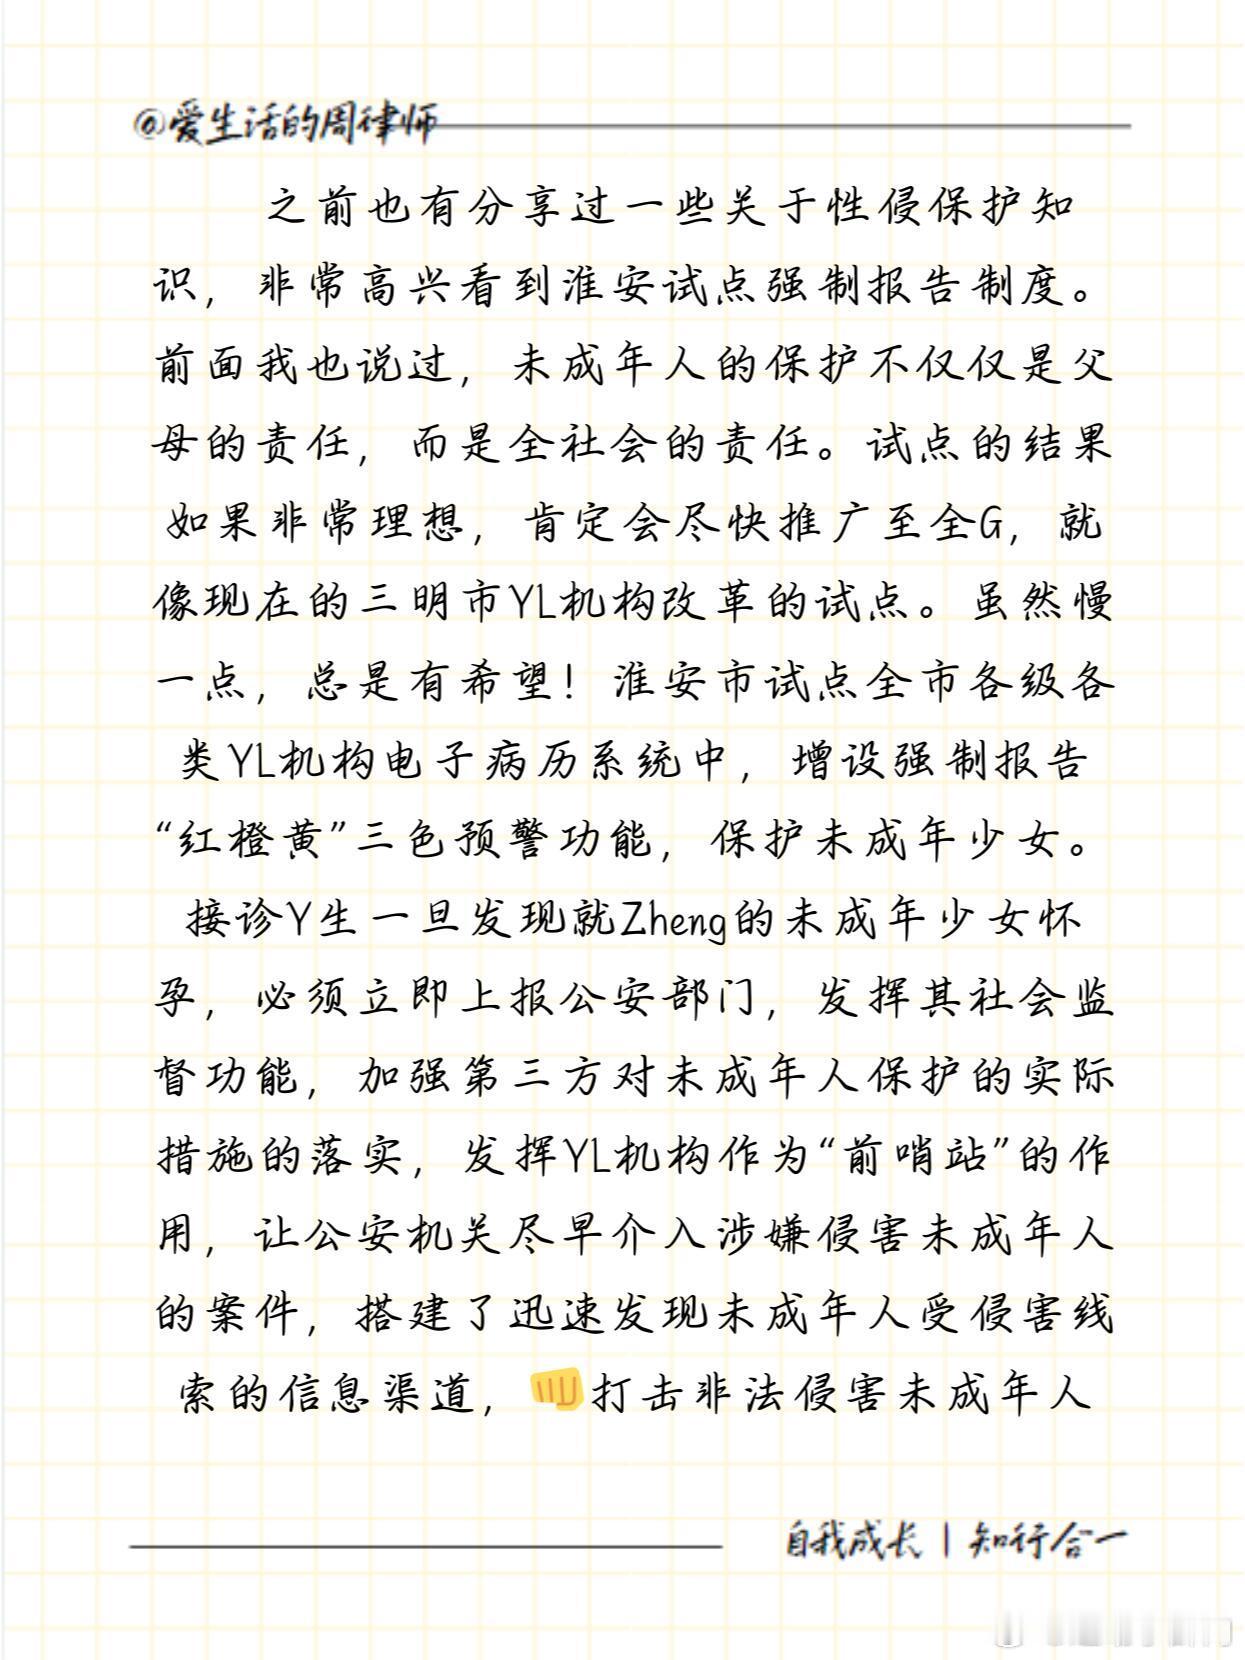 @爱生活的周律师
之前也有分享过一些关于性侵保护知
识，非常高兴看到淮安试点强制报告制度。
前面我也说过，未成年人的保护不仅仅是父
母的责任，而是全社会的责任。试点的结果
如果非常理想，肯定会尽快推广至全G，就
像现在的三明市YL机构改革的试点。虽然慢
一点，总是有希望！淮安市试点全市各级各
类YL机构电子病历系统中，增设强制报告
“红橙黄”三色预警功能，保护未成年少女。
接诊Y生一旦发现就Zheng的未成年少女怀
孕，必须立即上报公安部门，发挥其社会监
督功能，加强第三方对未成年人保护的实际
措施的落实，发挥YL机构作为“前哨站”的作
用，让公安机关尽早介入涉嫌侵害未成年人
的案件，搭建了迅速发现未成年人受侵害线
索的信息渠道，👊打击非法侵害未成年人
自我成长 | 知行合一